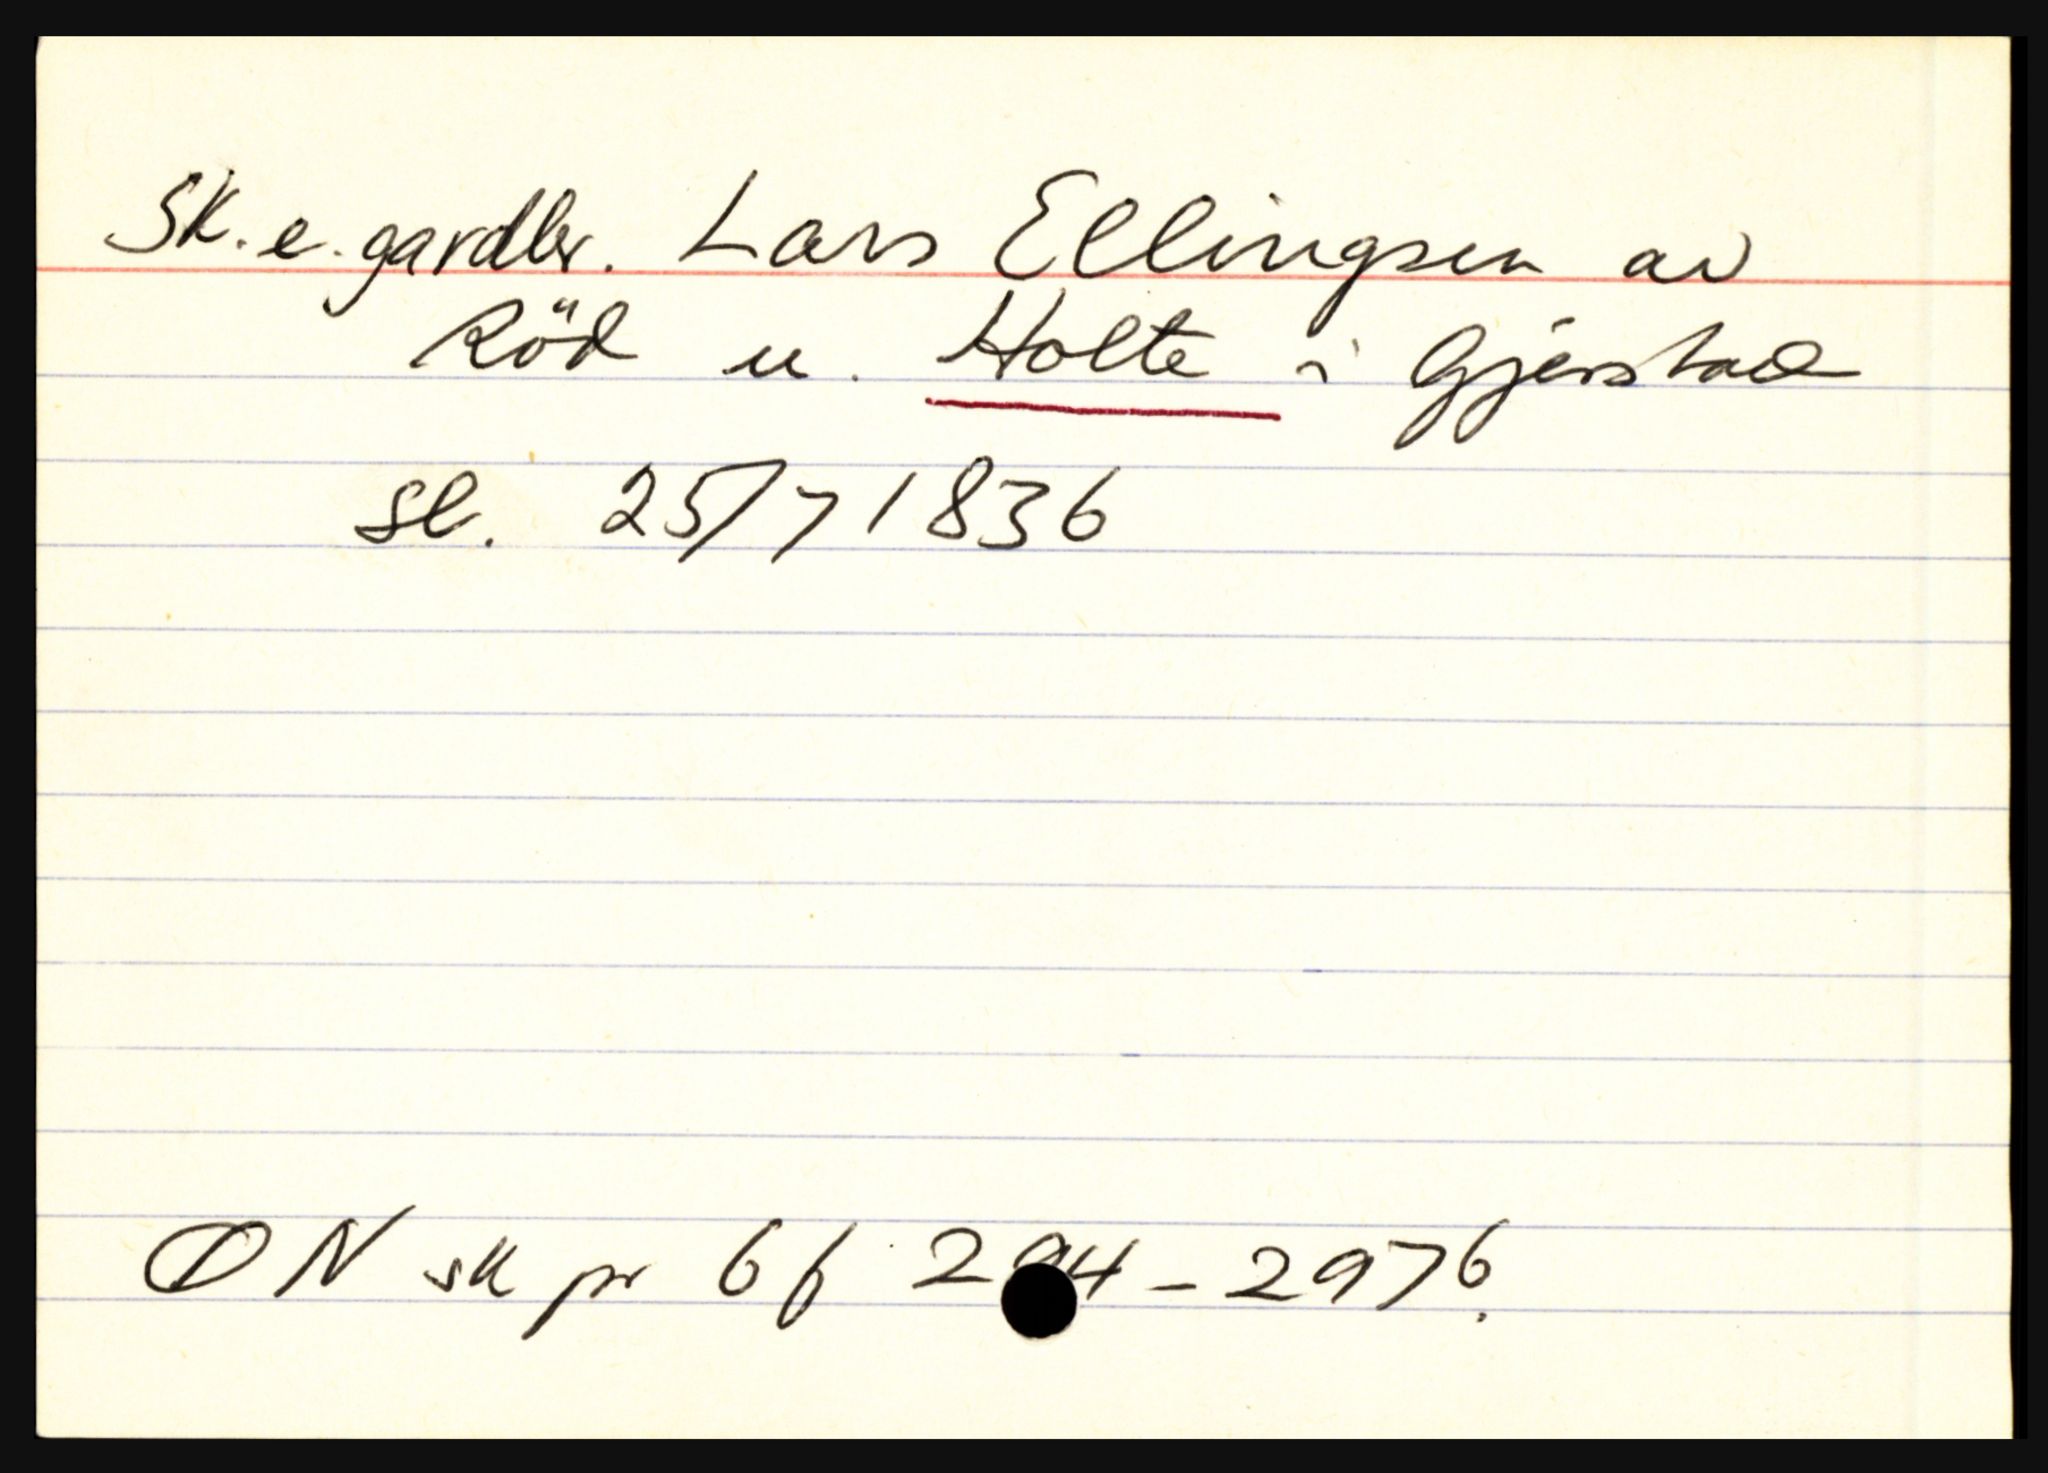 Sk. e. gardbr. Lars Ellingsen av
Röd u. Holte i Gjerstad
sl. 25/7 1836
ØN sk pr 6 f 294 - 297 b.